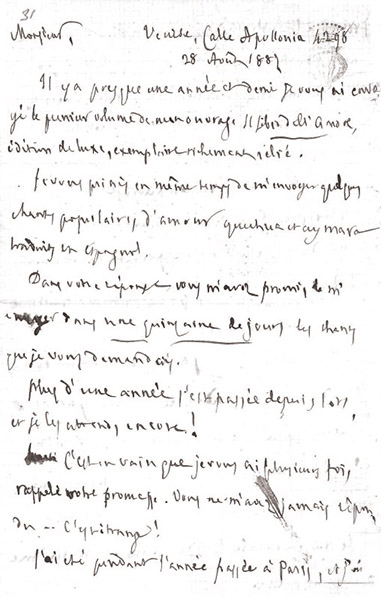 31
Monsieur, Venise, Calle Apollonia 4298
28 Août 1887
Il y a presque une année et demi je vous ai envo
yé le premier volume de mon ouvrage Il libro di Amore,
édition de luxe, exemplaire richement relié.
Je vous priais en même temps de m'envoyer quelques
chants populaires, d'amour quechua et aymara
traduits en espagnol.
Dans votre réponse vous m'avez promis de m'
envoyer dans une quinzaine de jours les chants
que je vous demandais.
Plus d'une année s'est passée depuis lors,
et je les attends encore!
C'est en vain que je vous ai plusieurs fois,
rappelé votre promesse. Vous ne m'avez jamais répon
du -- C'est étrange!
J'ai été pendant l'année passée à Paris, et j'ai